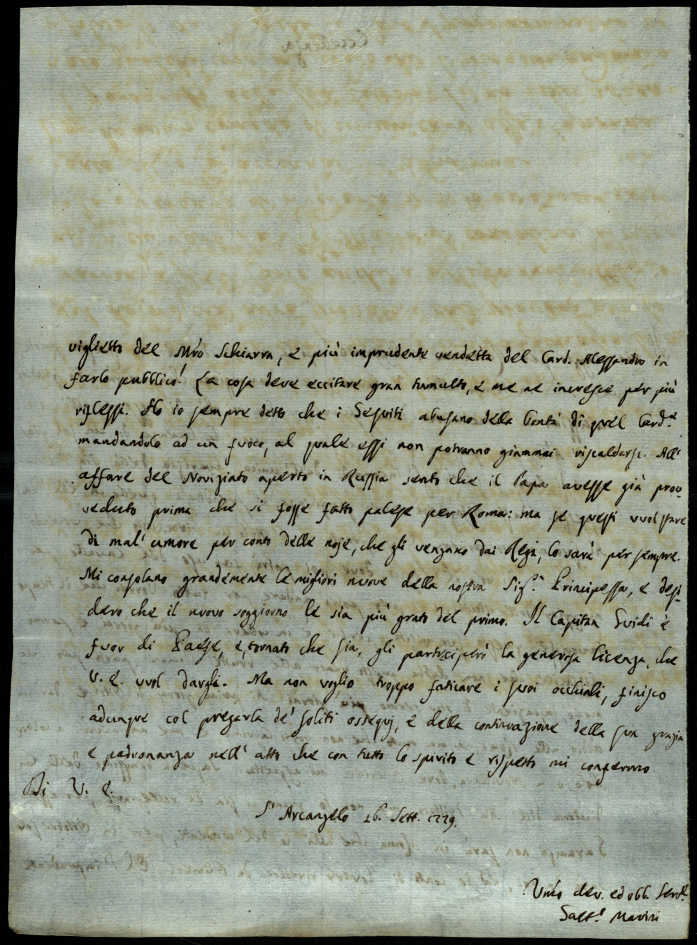 Eccellenza
viglietto del Mro Schiarra, e più imprudente vendetta del Card. Alessandro in
farlo pubblico! La cosa deve eccitare gran tumulto, e me ne incresce per più
riflessi. Ho io sempre detto che i Gesuiti abusano della bontà di quel Card.e
mandandolo ad un fuoco, al quale essi non potranno giammai riscaldarsi. All'
affare del Noviziato aperto in Russia sento che il Papa avesse già prov
veduto prima che si fosse fatto palese per Roma: ma se questi vuol stare
di mal' umore per conto delle noje, che gli vengano dai Regj, lo sarà per sempre.
Mi consolano grandemente le migliori nuove della nostra Sig.ra Principessa, e desi
dero che il nuovo soggiorno le sia più grato del primo. Il Capitan Guidi è
fuor di Paese, e, tornato che sia, gli parteciperò la generosa licenza, che
V. E. vuol dargli. Ma non voglio troppo faticare i suoi occhiali, finisco
adunque col pregarla de' soliti ossequj, e della continuazione della sua grazia
e padronanza nell' atto che con tutto lo spirito e rispetto mi confermo
Di V. E.
S.t Arcangelo 16. Sett. 1779.
Umo dev. ed obb. Serv.e
Gaet.o Marini